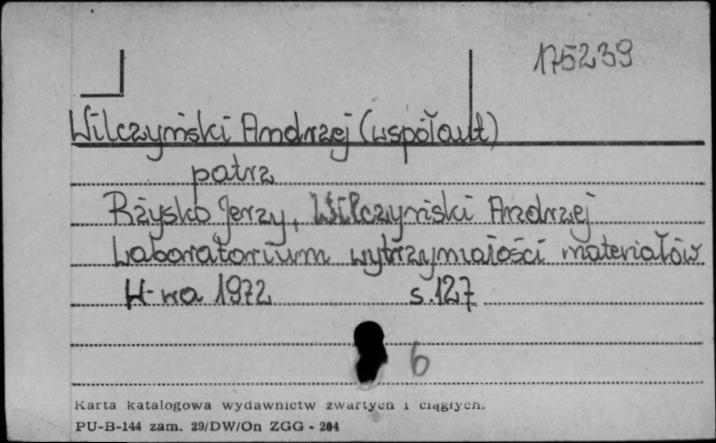 175239
Wilczyński Andrzej (współaut)
patrz
Rżysko Jerzy, Wilczyński Andrzej
Laboratorium wytrzymałości materiałów
W-wa 1972 s.127
6
Karta katalogowa wydawnictw zwartych i ciągłych.
PU-B-144 zam. 29/DW/On ZGG - 204